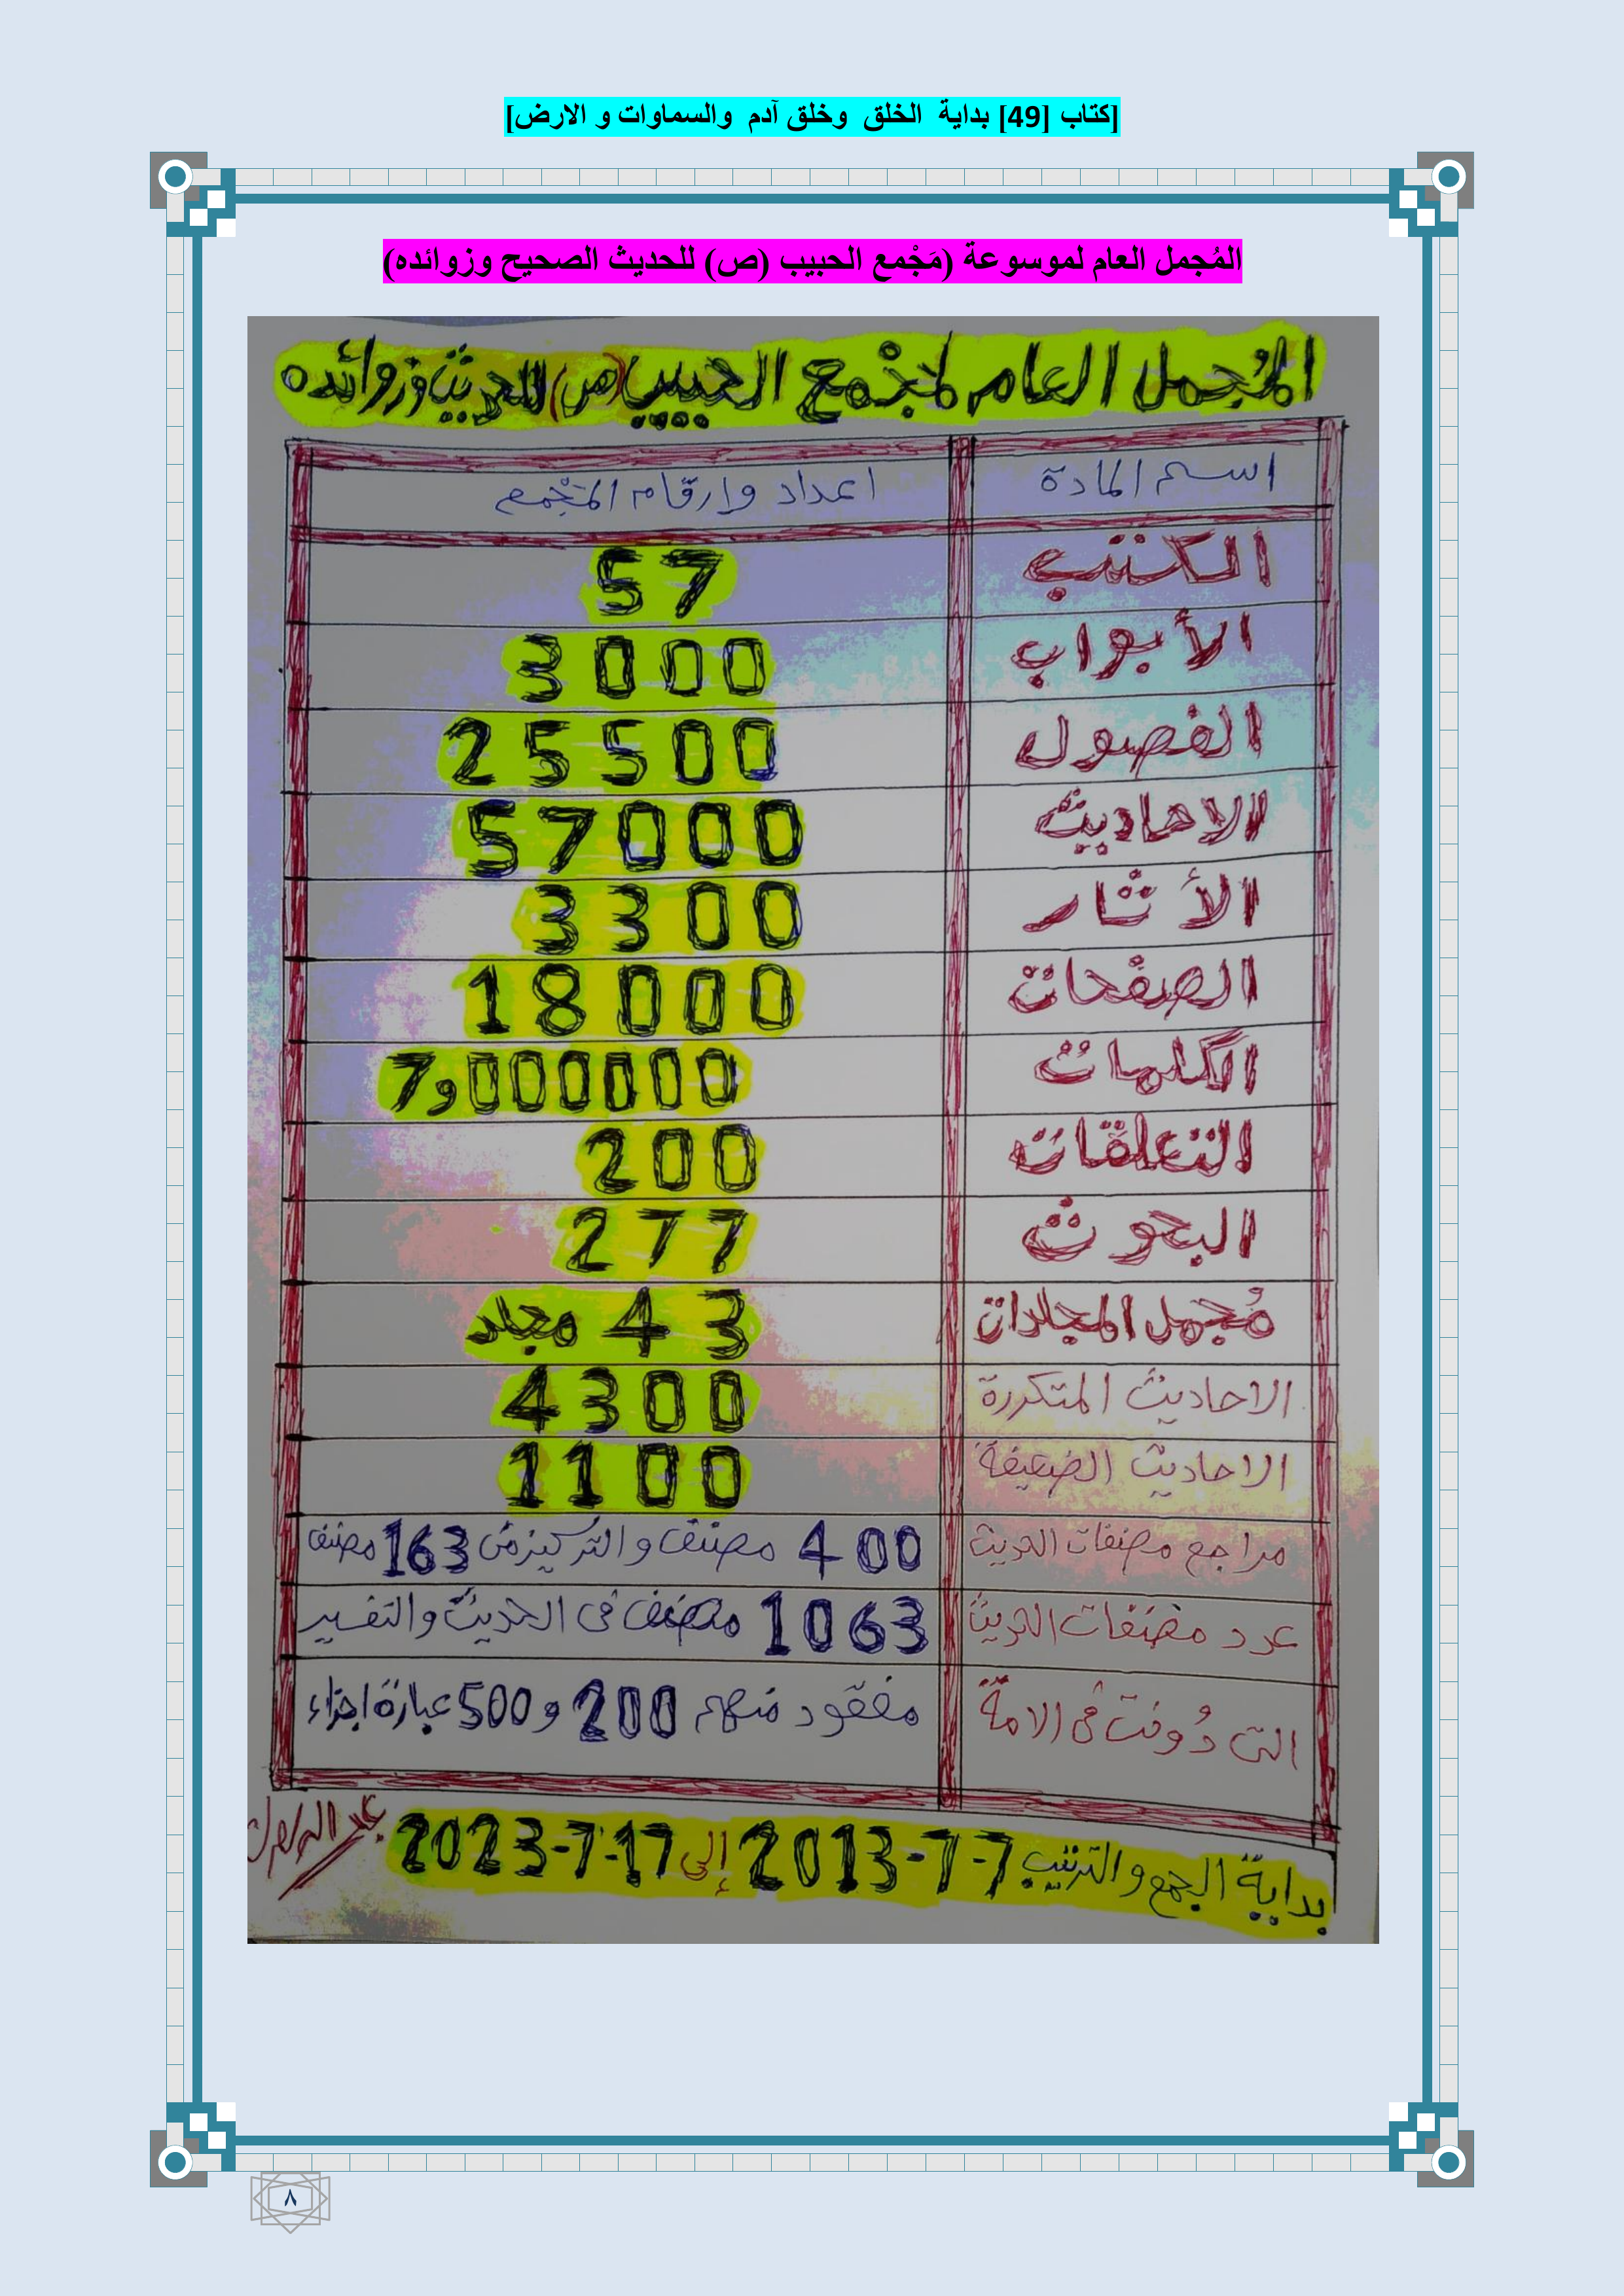 [كتاب [49] بداية الخلق وخلق آدم والسماوات و الارض]
المُجمل العام لموسوعة (مَجْمع الحبيب (ص) للحديث الصحيح وزوائده)
المُجمل العام لمَجْمع الحبيب (ص) للحديث وزوائده
اسم المادة اعداد وارقام المَجْمع
الكتب 57
الأبواب 3000
الفصول 25500
الاحاديث 57000
الأثار 3300
الصفحات 18000
الكلمات 7و000000
التعلقات 200
البحوث 277
مُجمل المجلدات 43 مجلد
الاحاديث المتكررة 4300
الاحاديث الضعيفة 1100
مراجع مصنفات الحديث 400 مصنف والتركيز من 163 مصنف
عدد مصنفات الحديث 1063 مصنف فى الحديث والتفسير
التى دُونت فى الامة مفقود منهم 200 و 500 عبارة اجزاء
بداية الجمع والترتيب 7-7-2013 إلى 17-7-2023
٨